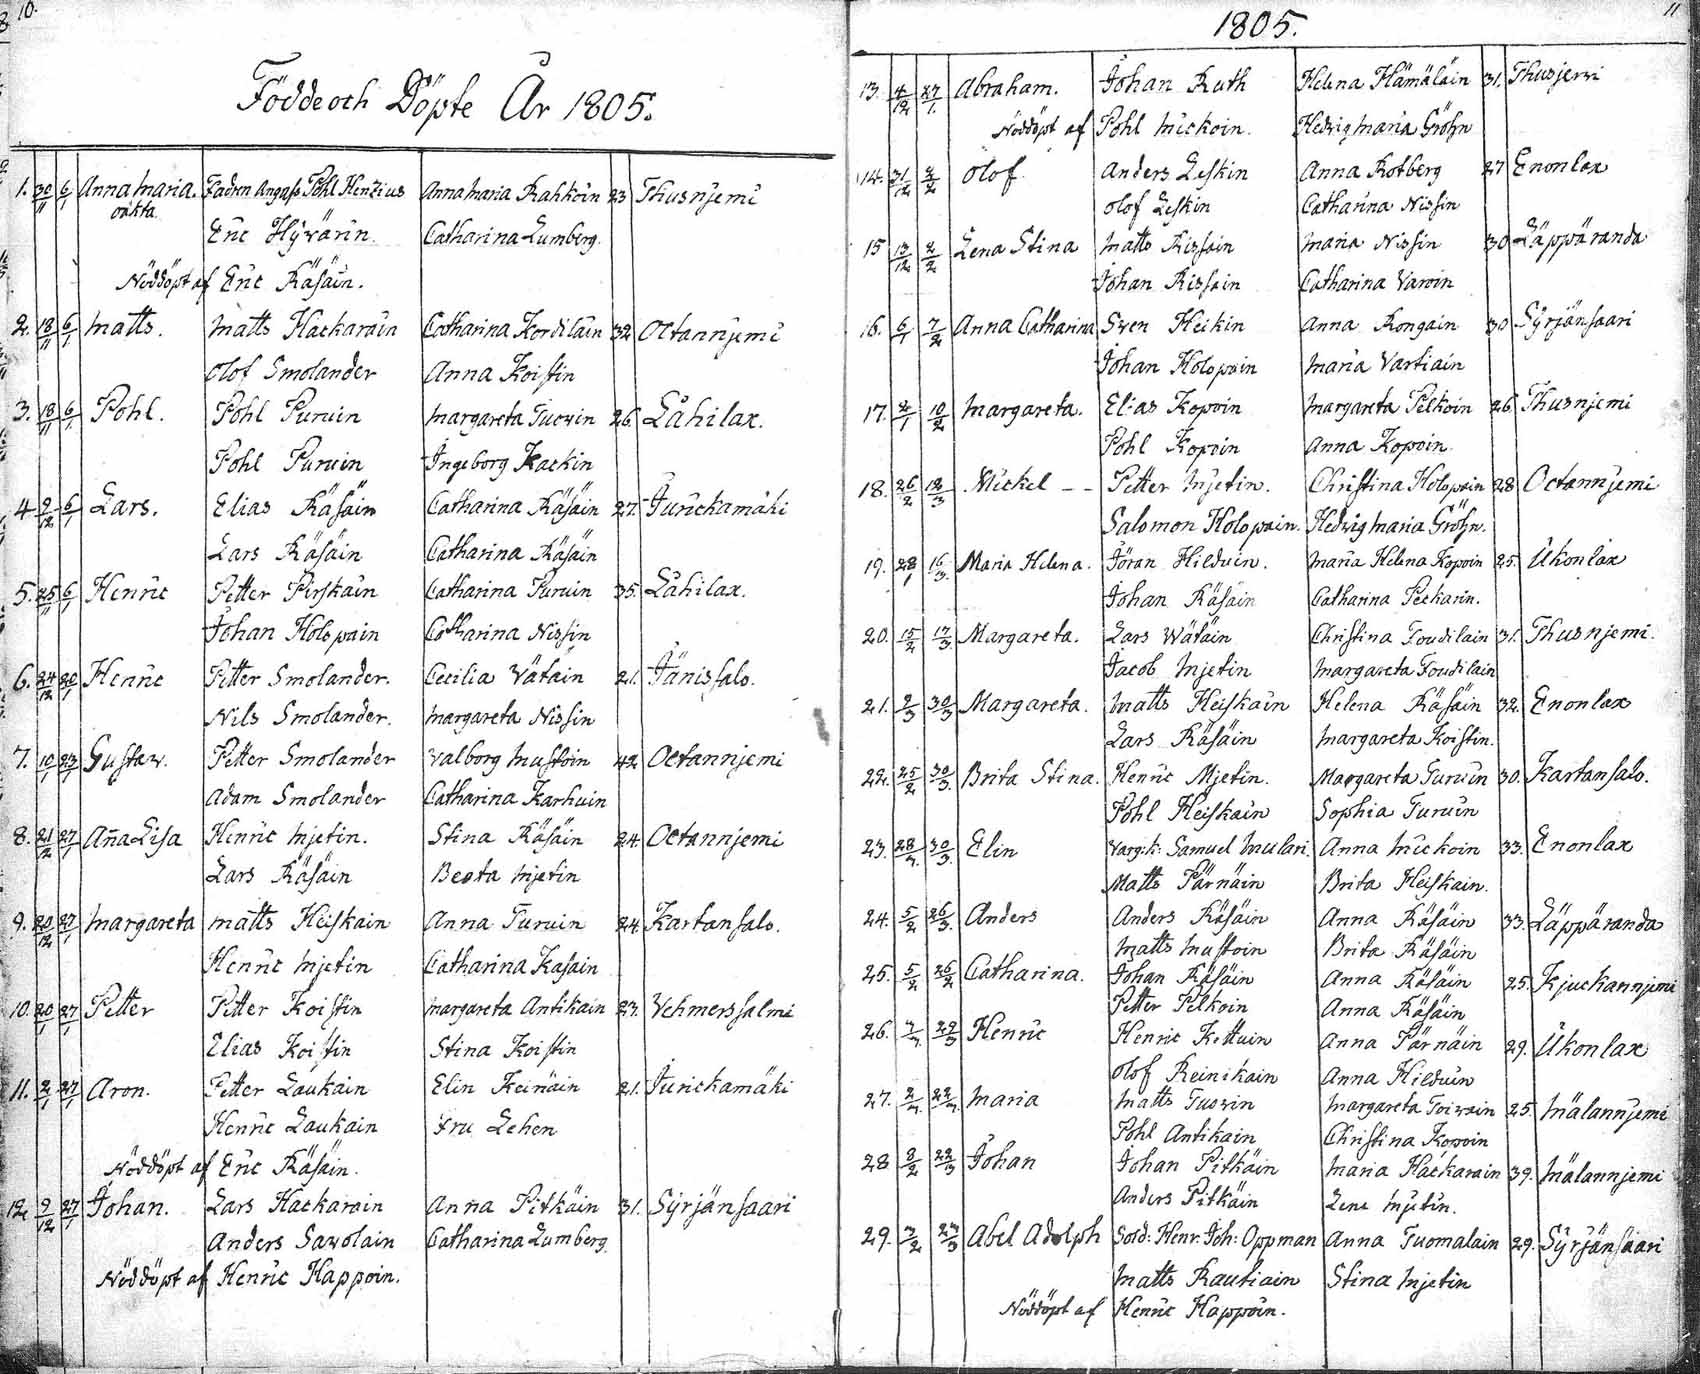 10.
Födde och Döpte År 1805.
1. 30/11 6/1 Anna Maria. Fadren Pohl Henzius Anna Maria Rahkoin 23 Thusnjemi
oäkta. Eric Hÿvärin. Catharina Lumberg.
Nöddöpt af Eric Räsäin.
2. 18/11 6/1 Matts. Matts Hackarain Catharina Kordilain 32 Octannjemi
Olof Smolander Anna Koistin
3. 18/11 6/1 Pohl. Pohl Puruin Margareta Tuovin 26. Lahilax.
Pohl Puruin Ingeborg Kackin
4 9/12 6/1 Lars. Elias Räsäin Catharina Räsäin 27. Jurickamäki
Lars Räsäin Catharina Räsäin
5. 25/11 6/1 Henric Petter Pirskain Catharina Puruin 35. Lahilax.
Johan Holopain Catharina Nissin
6. 24/12 20/1 Henric Petter Smolander. Cecilia Vätäin 21. Jänissalo.
Nils Smolander. Margareta Nissin
7. 10/1 23/1 Gustaw. Petter Smolander Valborg Mustoin 42 Octannjemi
Adam Smolander Catharina Karhuin
8. 21/12 27/1 Aña Lisa Henric Mjetin. Stina Räsäin 24. Octannjemi
Lars Räsäin Beata Mjetin
9. 20/12 27/1 Margareta Matts Heiskain Anna Turuin 24. Kartansalo.
Henric Mjetin Catharina Kasain
10. 20/1 27/1 Petter Petter Koistin Margareta Antikain 23. Vehmerssalmi
Elias Koistin Stina Koistin
11. 2/1 27/1 Aron. Petter Laukain Elin Keinäin 21. Jurickamäki
Henric Laukain Fru Lehen
Nöddöpt af Eric Räsäin.
12. 9/12 27/1 Johan. Lars Hackarain Anna Pitkäin 31. Sÿrjänsaari
Anders Sawolain Catharina Lumberg.
Nöddöpt af Henric Happoin.
11
1805.
13. 4/12 27/1. Abraham. Johan Ruth Helena Hämäläin 31. Thusjerwi
Nöddöpt af Pohl Mickoin. Hedvig Maria Gröhn
14. 31/12 2/2 Olof. Anders Leskin Anna Rotberg 27 Enonlax
Olof Leskin Catharina Nissin
15 13/12 2/2 Lena Stina Matts Rissain Maria Nissin 30 Läppäranda
Johan Rissain Catharina Varoin
16. 6/1 7/2 Anna Catharina Swen Heikin Anna Rongain 30 Sÿrjänsaari
Johan Holopain Maria Vartiain
17. 2/1 10/2 Margareta. Elias Kopoin Margareta Pelkoin 26. Thusnjemi
Pohl Kopoin Anna Kopoin
18. 26/2 12/3 Mickel -- Petter Mjetin. Christina Holopain 28 Octannjemi
Salomon Holopain. Hedvig Maria Gröhn.
19. 28/1 16/3. Maria Helena. Jöran Hilduin. Maria Helena Kopoin 25. Ukonlax
Johan Räsäin Catharina Peckarin.
20. 15/2 17/3. Margareta. Lars Wätäin Christina Toudilain 31. Thusnjemi.
Jacob Mjetin Margareta Toudilain
21. 9/3 30/3 Margareta. Matts Heiskain Helena Räsäin 32. Enonlax
Lars Räsäin Margareta Koistin.
22. 25/2 30/3. Brita Stina. Henric Mjetin. Margareta Turuin 30. Kartansalo.
Pohl Heiskain Sophia Turuin
23. 28/2 30/3. Elin Varg:k: Samuel Mulari. Anna Mickoin 33. Enonlax
Matts Pärnäin Brita Heiskain.
24. 5/2 26/3. Anders Anders Räsäin Anna Räsäin 33. Läppäranda
Matts Mustoin Brita Räsäin
25. 5/2 26/2 Catharina. Johan Räsäin Anna Räsäin 25. Kjuckannjemi
Petter Pelkoin Anna Räsäin
26. 29/3 Henric Henric Kettuin Anna Pärnäin 29. Ukonlax
Olof Reinikain Anna Hilduin
27. Maria Matts Tuovin Margareta Toivain 25. Mälannjemi
Pohl Antikain Christina Kopoin
28 8/2 22/3 Johan Johan Pitkäin Maria Hackarain 39. Mälannjemi
Anders Pitkäin Lena Mjetin.
29. 3/2 23/3 Abel Adolph Sold: Henr: Joh: Oppman Anna Tuomalain 29. Sÿrjänsaari
Matts Rautiain Stina Mjetin
Nöddöpt af Henric Happoin.